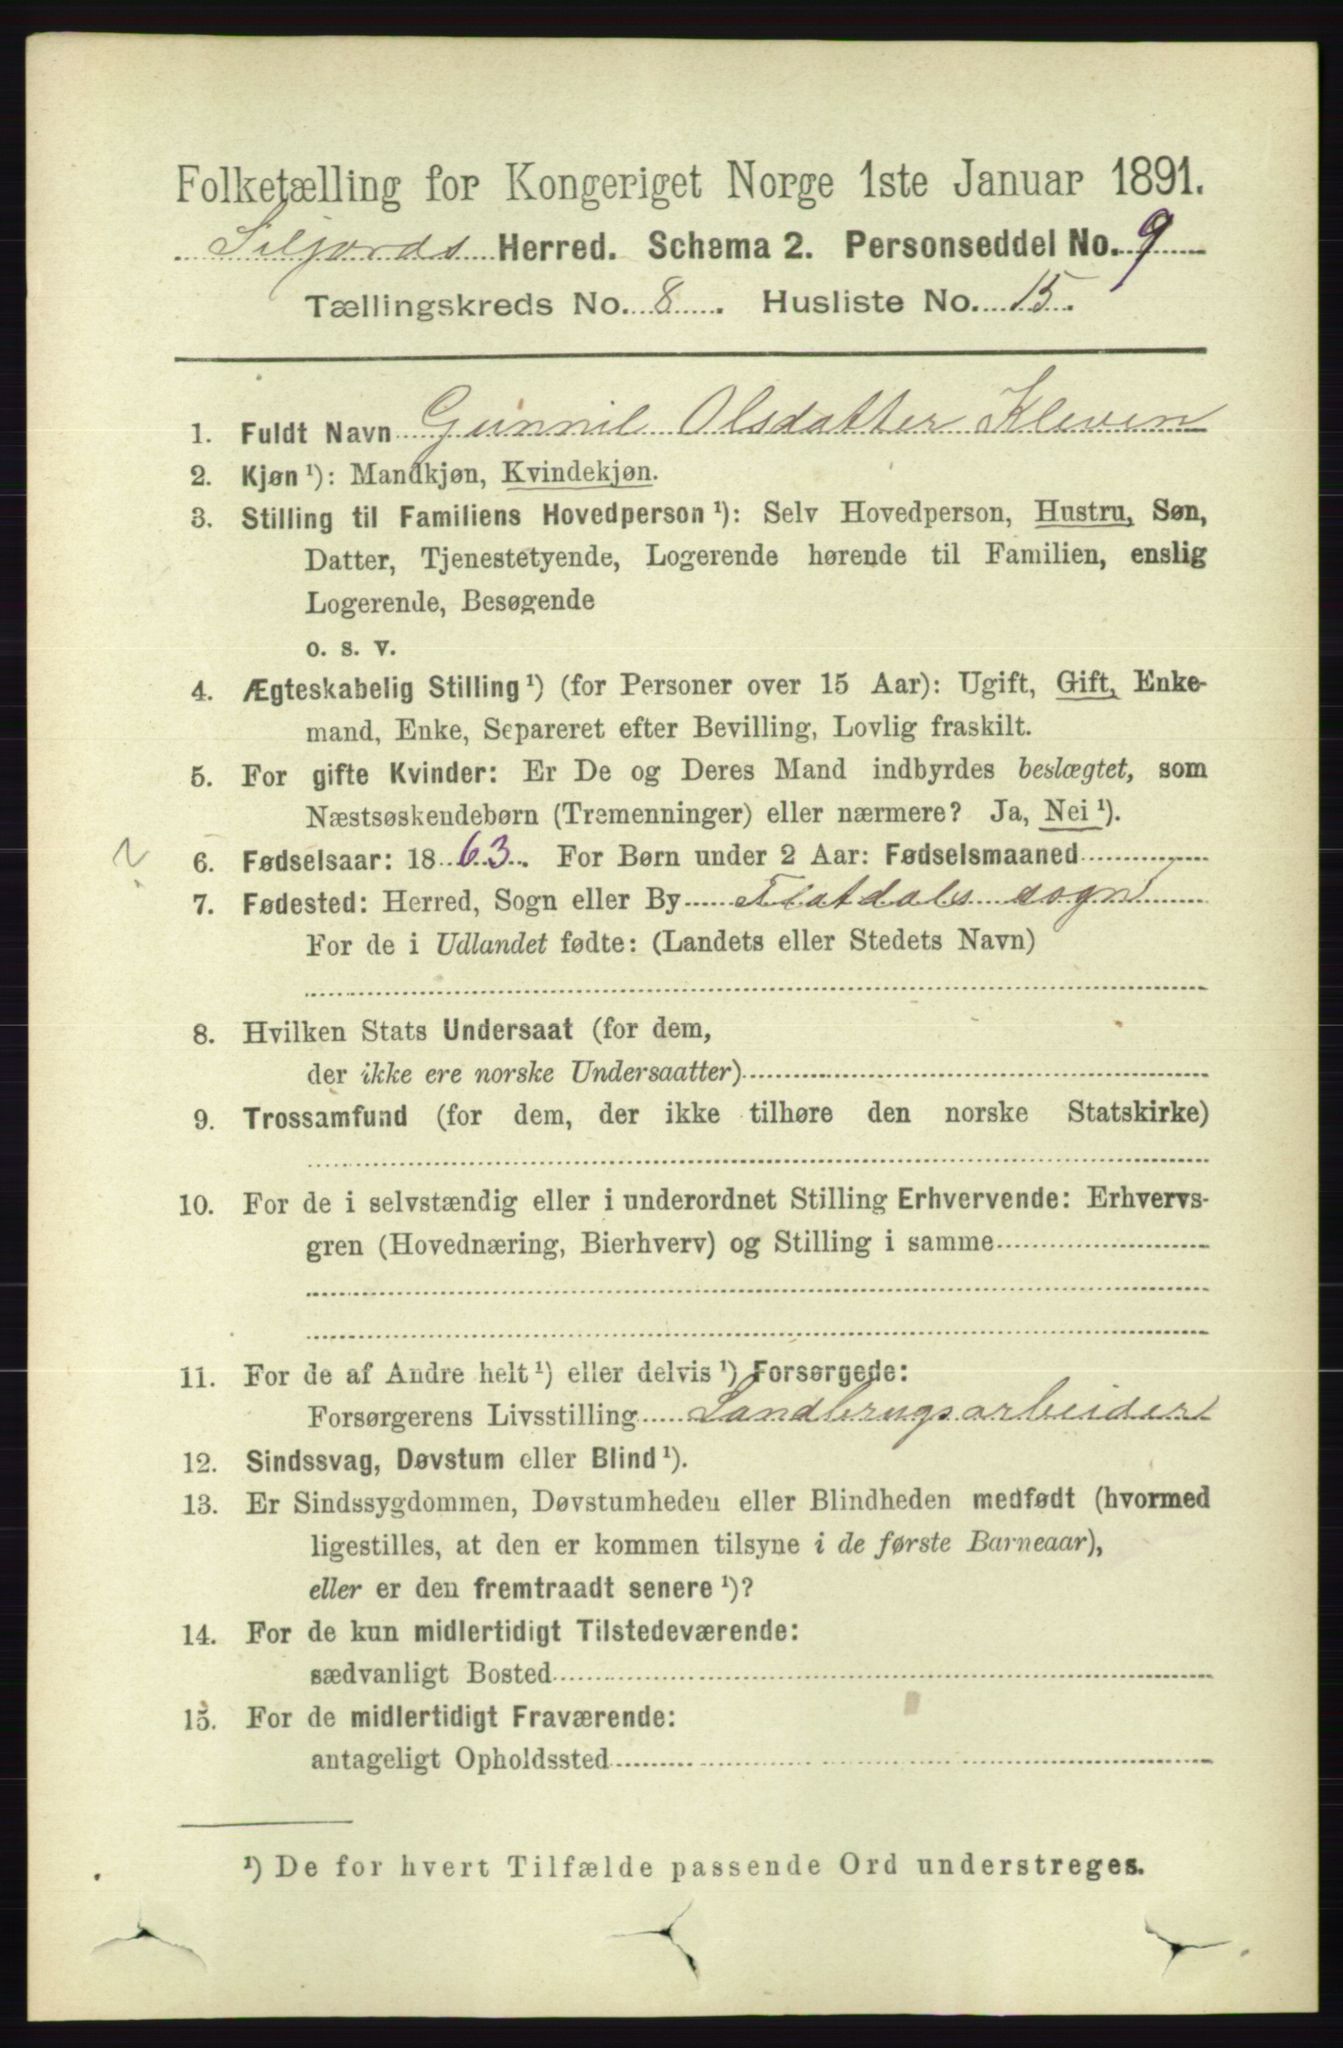 Folketælling for Kongeriget Norge 1ste Januar 1891.
Siljords Herred. Schema 2. Personseddel No. 9
Tællingskreds No. 8. Husliste No. 15.
1. Fuldt Navn Gunnil Olsdatter Kleven
2. Kjøn ¹): Mandkjøn, Kvindekjøn.
3. Stilling til Familiens Hovedperson ¹): Selv Hovedperson, Hustru, Søn,
Datter, Tjenestetyende, Logerende hørende til Familien, enslig
Logerende, Besøgende
o. s. v.
4. Ægteskabelig Stilling ¹) (for Personer over 15 Aar): Ugift, Gift, Enke-
mand, Enke, Separeret efter Bevilling, Lovlig fraskilt.
5. For gifte Kvinder: Er De og Deres Mand indbyrdes beslægtet, som
Næstsøskendebørn (Tremenninger) eller nærmere? Ja, Nei ¹).
6. Fødselsaar: 1863. For Børn under 2 Aar: Fødselsmaaned
7. Fødested: Herred, Sogn eller By Flatdals sogn
For de i Udlandet fødte: (Landets eller Stedets Navn)
8. Hvilken Stats Undersaat (for dem,
der ikke ere norske Undersaatter)
9. Trossamfund (for dem, der ikke tilhøre den norske Statskirke)
10. For de i selvstændig eller i underordnet Stilling Erhvervende: Erhvervs-
gren (Hovednæring, Bierhverv) og Stilling i samme
11. For de af Andre helt ¹) eller delvis ¹) Forsørgede:
Forsørgerens Livsstilling Landbrugsarbeider
12. Sindssvag, Døvstum eller Blind ¹).
13. Er Sindssygdommen, Døvstumheden eller Blindheden medfødt (hvormed
ligestilles, at den er kommen tilsyne i de første Barneaar),
eller er den fremtraadt senere ¹)?
14. For de kun midlertidigt Tilstedeværende:
sædvanligt Bosted
15. For de midlertidigt Fraværende:
antageligt Opholdssted
¹) De for hvert Tilfælde passende Ord understreges.